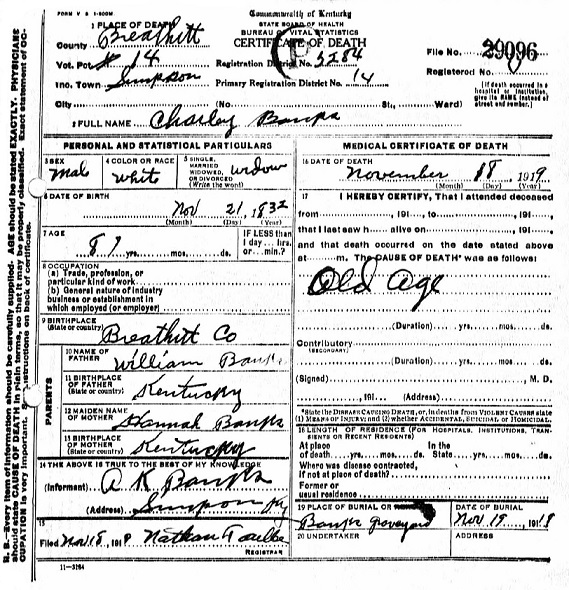 FORM V S 1-500M
Commonwealth of Kentucky
STATE BOARD OF HEALTH
BUREAU OF VITAL STATISTICS
CERTIFICATE OF DEATH
1 PLACE OF DEATH
County Breathitt
Vot. Pct # 14
Inc. Town Simpson
Registration District No. 5284
Primary Registration District No. 14
File No. 29096
Registered No.
(If death occurred in a hospital or institution, give its NAME instead of street and number.)
City (No St., Ward)
2 FULL NAME Charley Banks
PERSONAL AND STATISTICAL PARTICULARS
3 SEX Male
4 COLOR OR RACE whit
5 SINGLE, MARRIED WIDOWED, OR DIVORCED (Write the word) widow
6 DATE OF BIRTH
Nov 21, 1832
(Month) (Day) (Year)
7 AGE
87 yrs. mos. ds.
IF LESS than 1 day ... hrs. or ... min.?
8 OCCUPATION
(a) Trade, profession, or particular kind of work
(b) General nature of industry business or establishment in which employed (or employer)
9 BIRTHPLACE
(State or country) Breathitt Co
PARENTS
10 NAME OF FATHER William Banks
11 BIRTHPLACE OF FATHER
(State or country) Kentucky
12 MAIDEN NAME OF MOTHER Hannah Banks
13 BIRTHPLACE OF MOTHER
(State or country) Kentucky
14 THE ABOVE IS TRUE TO THE BEST OF MY KNOWLEDGE
(Informant) A K Banks
(Address) Simpson Ky
15
Filed Nov 18, 1918 Nathan
REGISTRAR
11-3184
MEDICAL CERTIFICATE OF DEATH
16 DATE OF DEATH
November 18, 1919
(Month) (Day) (Year)
17 I HEREBY CERTIFY, That I attended deceased
from , 191 , to , 191 ,
that I last saw h alive on , 191 ,
and that death occurred on the date stated above
at m. The CAUSE OF DEATH* was as follows:
Old Age
(Duration) yrs. mos. ds.
Contributory
(SECONDARY)
(Duration) yrs. mos. ds.
(Signed) M. D.
, 191 (Address)
*State the DISEASE CAUSING DEATH, or, in deaths from VIOLENT CAUSES state
(1) MEANS OF INJURY; and (2) whether ACCIDENTAL, SUICIDAL or HOMICIDAL.
18 LENGTH OF RESIDENCE (FOR HOSPITALS, INSTITUTIONS, TRANSIENTS OR RECENT RESIDENTS)
At place of death yrs. mos. ds. In the State yrs. mos. ds.
Where was disease contracted, if not at place of death?
Former or usual residence
19 PLACE OF BURIAL OR
Banks graveyard
DATE OF BURIAL
Nov 19, 1918
20 UNDERTAKER
ADDRESS
N. B.—Every item of information should be carefully supplied. AGE should be stated EXACTLY. PHYSICIANS
should state CAUSE OF DEATH in plain terms, so that it may be properly classified. Exact statement of OC-
CUPATION is very important. See instructions on back of certificate.